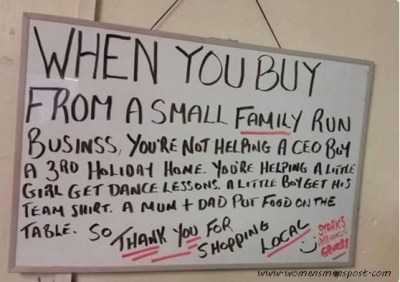 WHEN YOU BUY
FROM A SMALL FAMILY RUN
BUSINSS, YOU'RE NOT HELPING A CEO BUY
A 3RD HOLIDAY HOME. YOU'RE HELPING A LITTLE
GIRL GET DANCE LESSONS. A LITTLE BOY GET HIS
TEAM SHIRT. A MUM + DAD PUT FOOD ON THE
TABLE. SO THANK YOU FOR
SHOPPING LOCAL
STORK'S
www.womensmanspost.com